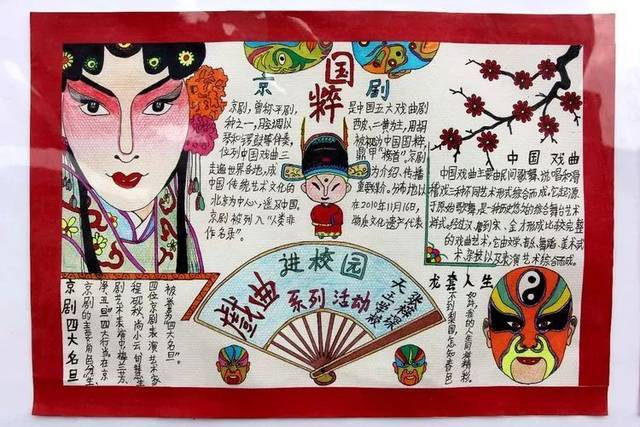 京 国粹 剧
京剧，曾称平剧，是中国五大戏曲剧
种之一，腔调以西皮、二黄为主，用胡
琴和锣鼓等伴奏，被视为中国国粹，
位列中国戏曲三鼎甲"榜首"京剧
走遍世界各地，成为介绍、传播
中国传统艺术文化的重要媒介。分布地以
北京为中心，遍及中国，在2010年11月16日，
京剧被列入"人类非物质文化遗产代表
作名录"。
中国戏曲
中国戏曲主要由民间歌舞、说唱和滑
稽戏三种不同艺术形式综合而成。它起源
于原始歌舞，是一种历史悠久的综合舞台艺术
样式。经过汉、唐到宋、金才形成比较完整
的戏曲艺术，它由文学、音乐、舞蹈、美术、武
术、杂技以及表演艺术综合而成。
进校园
戲曲
系列活动
京剧四大名旦
京剧的主要角色分"生、
净、丑、旦"四大行当在京
剧艺术表演中梅兰芳
程砚秋、尚小云、荀慧生
四位京剧表演艺术家
被誉为"四大名旦"。
龙套人生
不到梨园，怎知春色
如许，我的人生同样精彩。